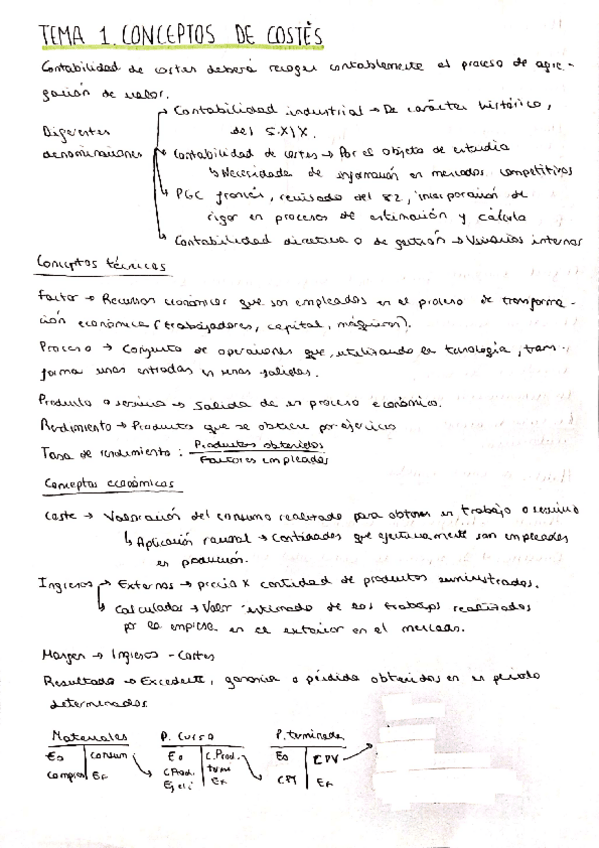 TEMA 1. CONCEPTOS DE COSTES
Contabilidad de costes deberá recoger contablemente el proceso de agre-
gación de valor.
Diferentes
denominaciones
→ Contabilidad industrial → De carácter histórico,
del S.XIX.
→ Contabilidad de costes → Por es objeto de estudio
↳ Necesidades de información en mercados competitivos
→ PGC francés, revisado del 82, incorporación de
rigor en procesos de estimación y cálculo
→ Contabilidad directiva o de gestión → Usuarios internos
Conceptos técnicos
Factor → Recursos económicos que son empleados en el proceso de transforma-
ción económica (trabajadores, capital, máquinas).
Proceso → Conjunto de operaciones que, utilizando la tecnología, trans-
forma unas entradas en unas salidas.
Producto o servicio → Salida de un proceso económico.
Rendimiento → Productos que se obtiene por ejercicio
Tasa de rendimiento: Productos obtenidos
Factores empleados
Conceptos económicos
Coste → Valoración del consumo realizado para obtener un trabajo o servicio
↳ Aplicación racional → Cantidades que efectivamente son empleadas
en producción.
Ingresos → Externos → precio x cantidad de productos suministrados.
→ Calculados → Valor estimado de los trabajos realizados
por la empresa en el exterior en el mercado.
Margen → Ingresos - Costes
Resultado → Excedente, ganancia o pérdida obtenidos en un periodo
determinado.
Materiales P. Curso P. terminados
Eo Consum Eo C.Prod. Eo CPV
Compras Ef C.Prod. termi CPT Ef
Ejerci Ef